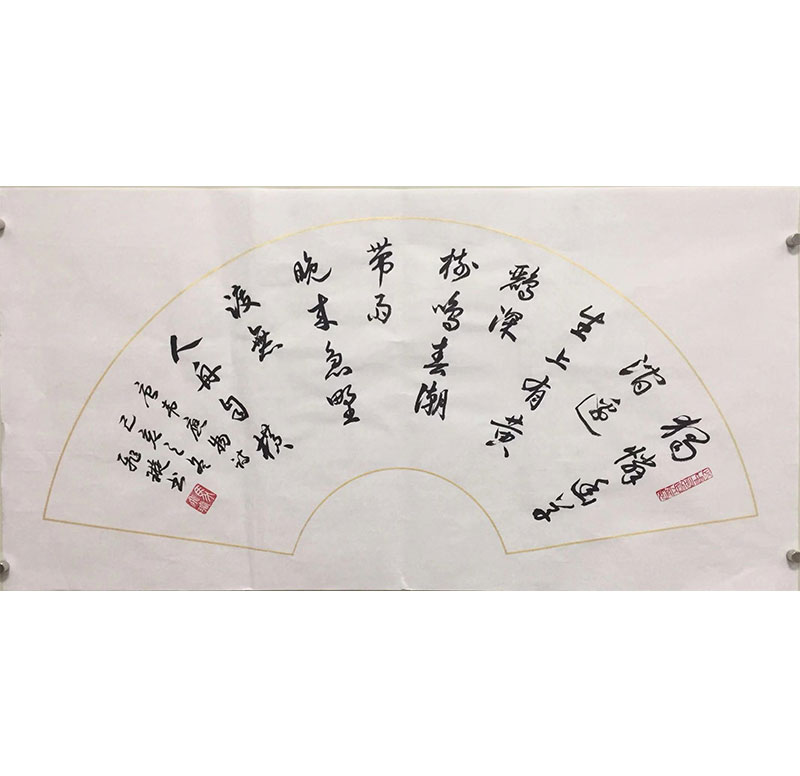 獨憐幽草
澗邊
生上有黄
鸝深
樹鳴春潮
帶雨
晚來急野
渡無
人舟自横
唐韦應物詩
己亥之冬
書